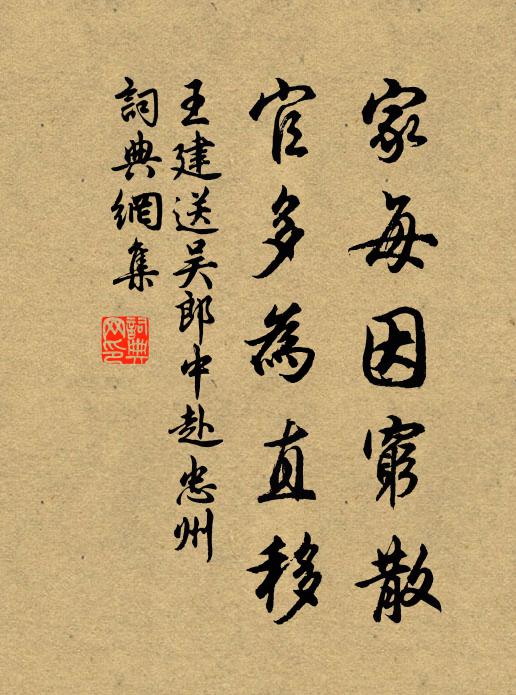 家每因窮散
官多為直移
王建送吴郎中赴忠州
詞典網集
詞典
网印